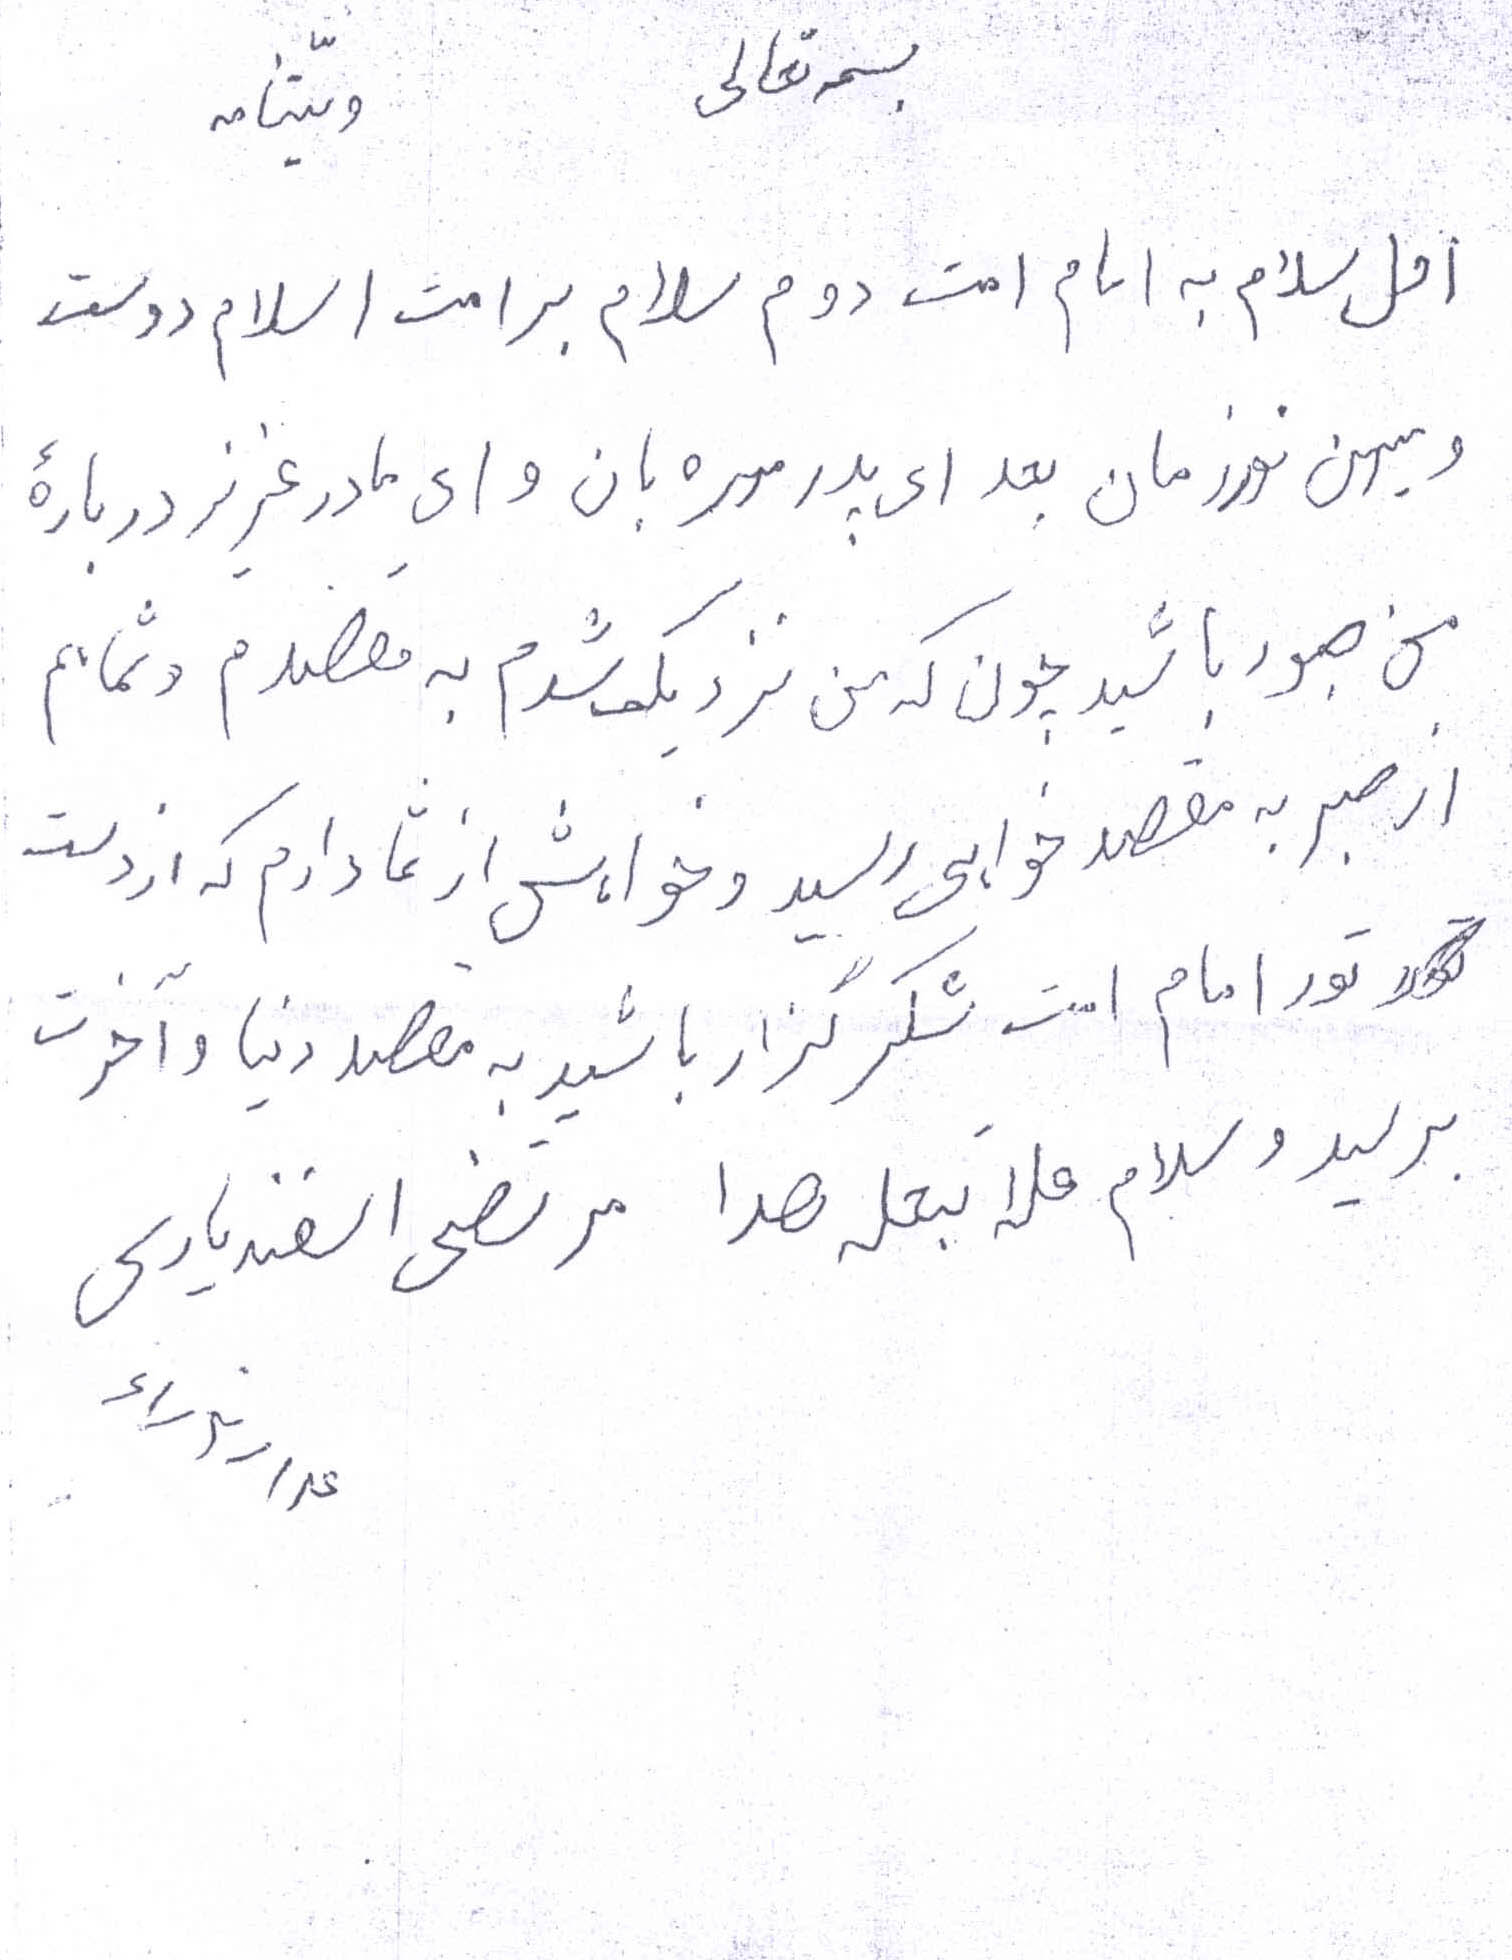 بسمه تعالی وصیتنامه
اول سلام به امام امت دوم سلام بر امت اسلام دوست
و میهن نورزمان بعد ای پدر مهره بان و ای مادر عزیز در بارهٔ
من صبور باشید چون که من نزدیک شدم به مقصدم و شما هم
از صبر به مقصد خواهی رسید و خواهش از شما دارم که از دست
تور امام امت شکر گزار باشید به مقصد دنیا و آخرت
برسید و سلام علا تبعله هدا مرتضی اسفندیاری